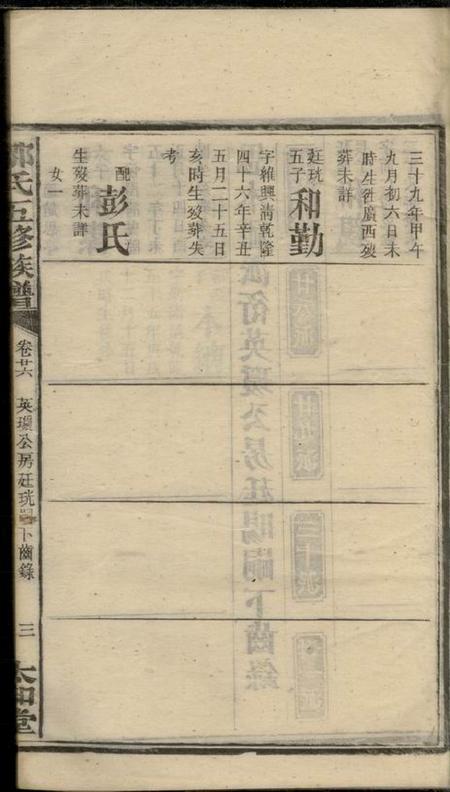 三十九年甲午
九月初六日未
時生徃廣西歿
葬未詳
廷珖
五子
和勤
字雅興清乾隆
四十六年辛丑
五月二十五日
亥時生歿葬失
考
配
彭氏
生歿葬未詳
女一
氏五修族譜
卷廿六
英環公房廷珖
下齒錄
三
太和堂